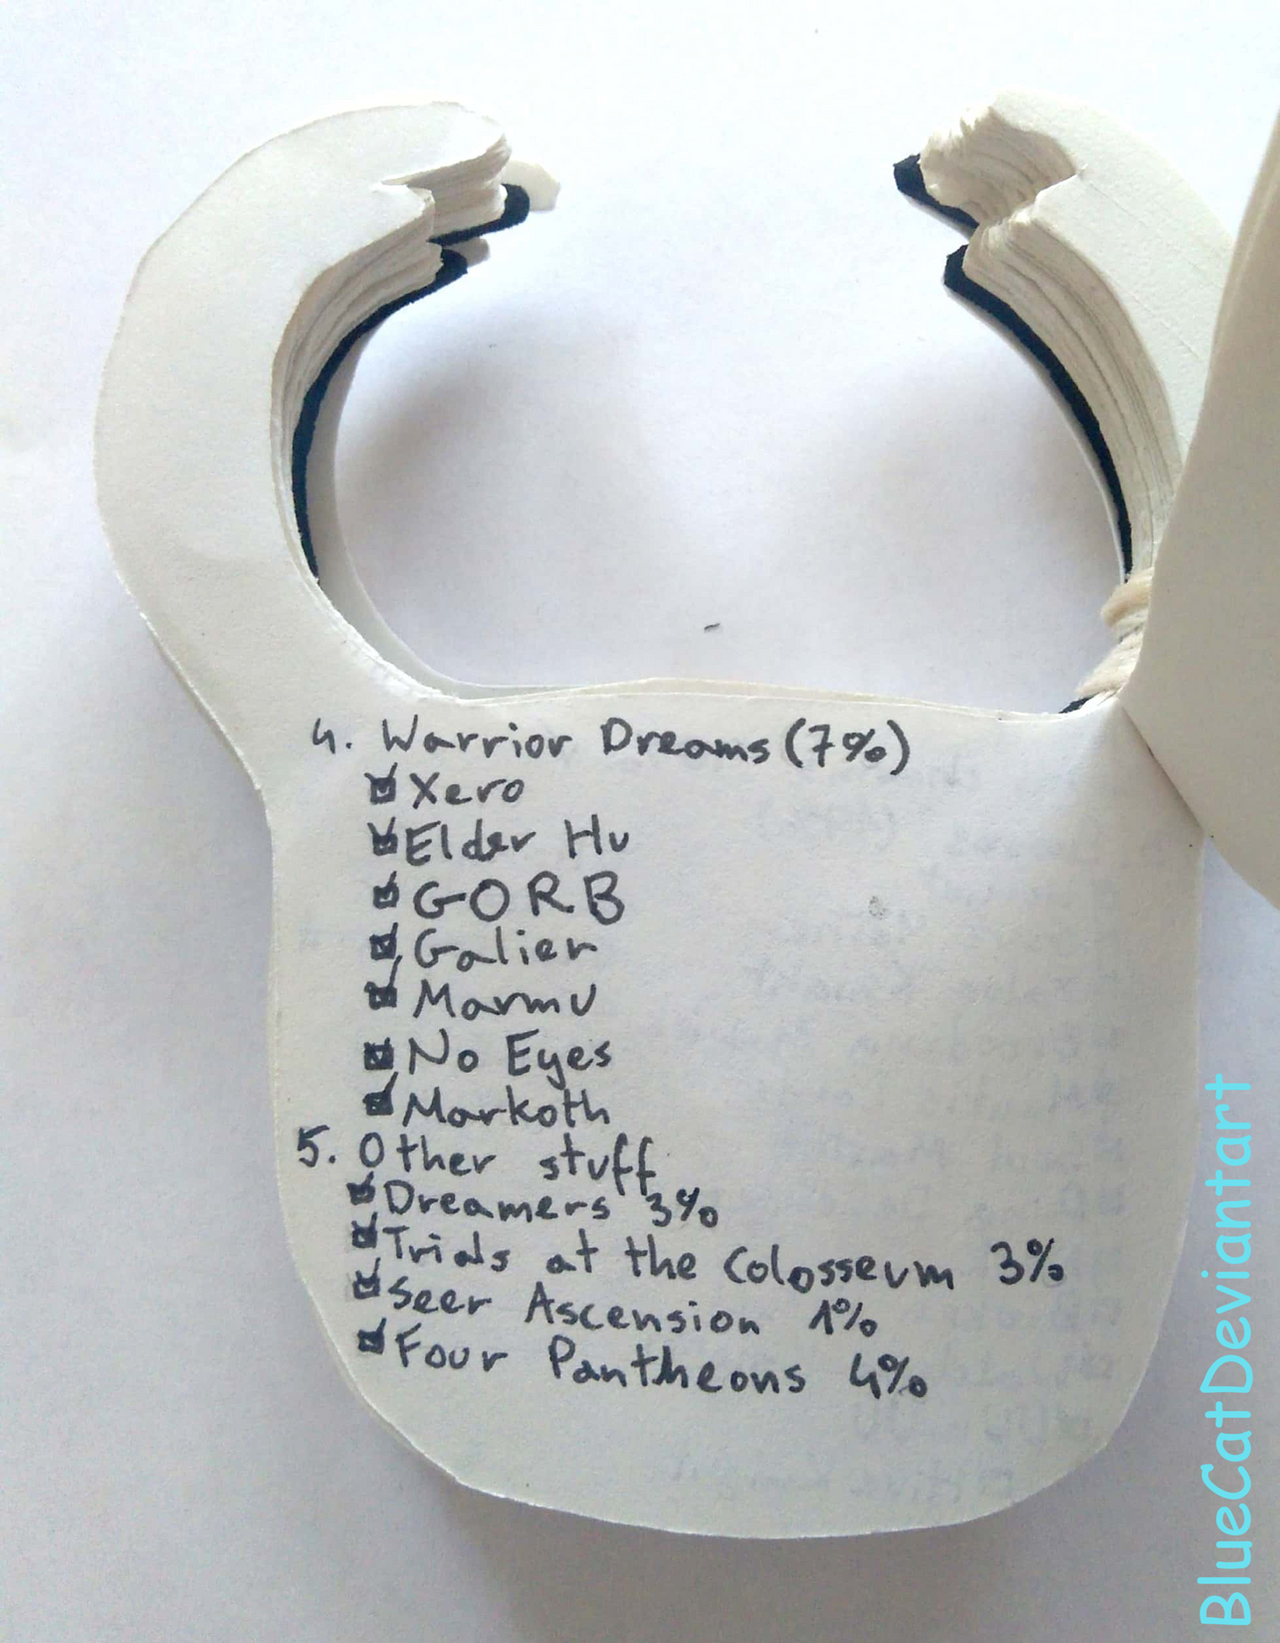 4. Warrior Dreams (7%)
☑ Xero
☑ Elder Hu
☑ GORB
☑ Galien
☑ Marmu
☑ No Eyes
☑ Markoth
5. Other stuff
☑ Dreamers 3%
☑ Trials at the Colosseum 3%
☑ Seer Ascension 1%
☑ Four Pantheons 4%
BlueCatDeviantart